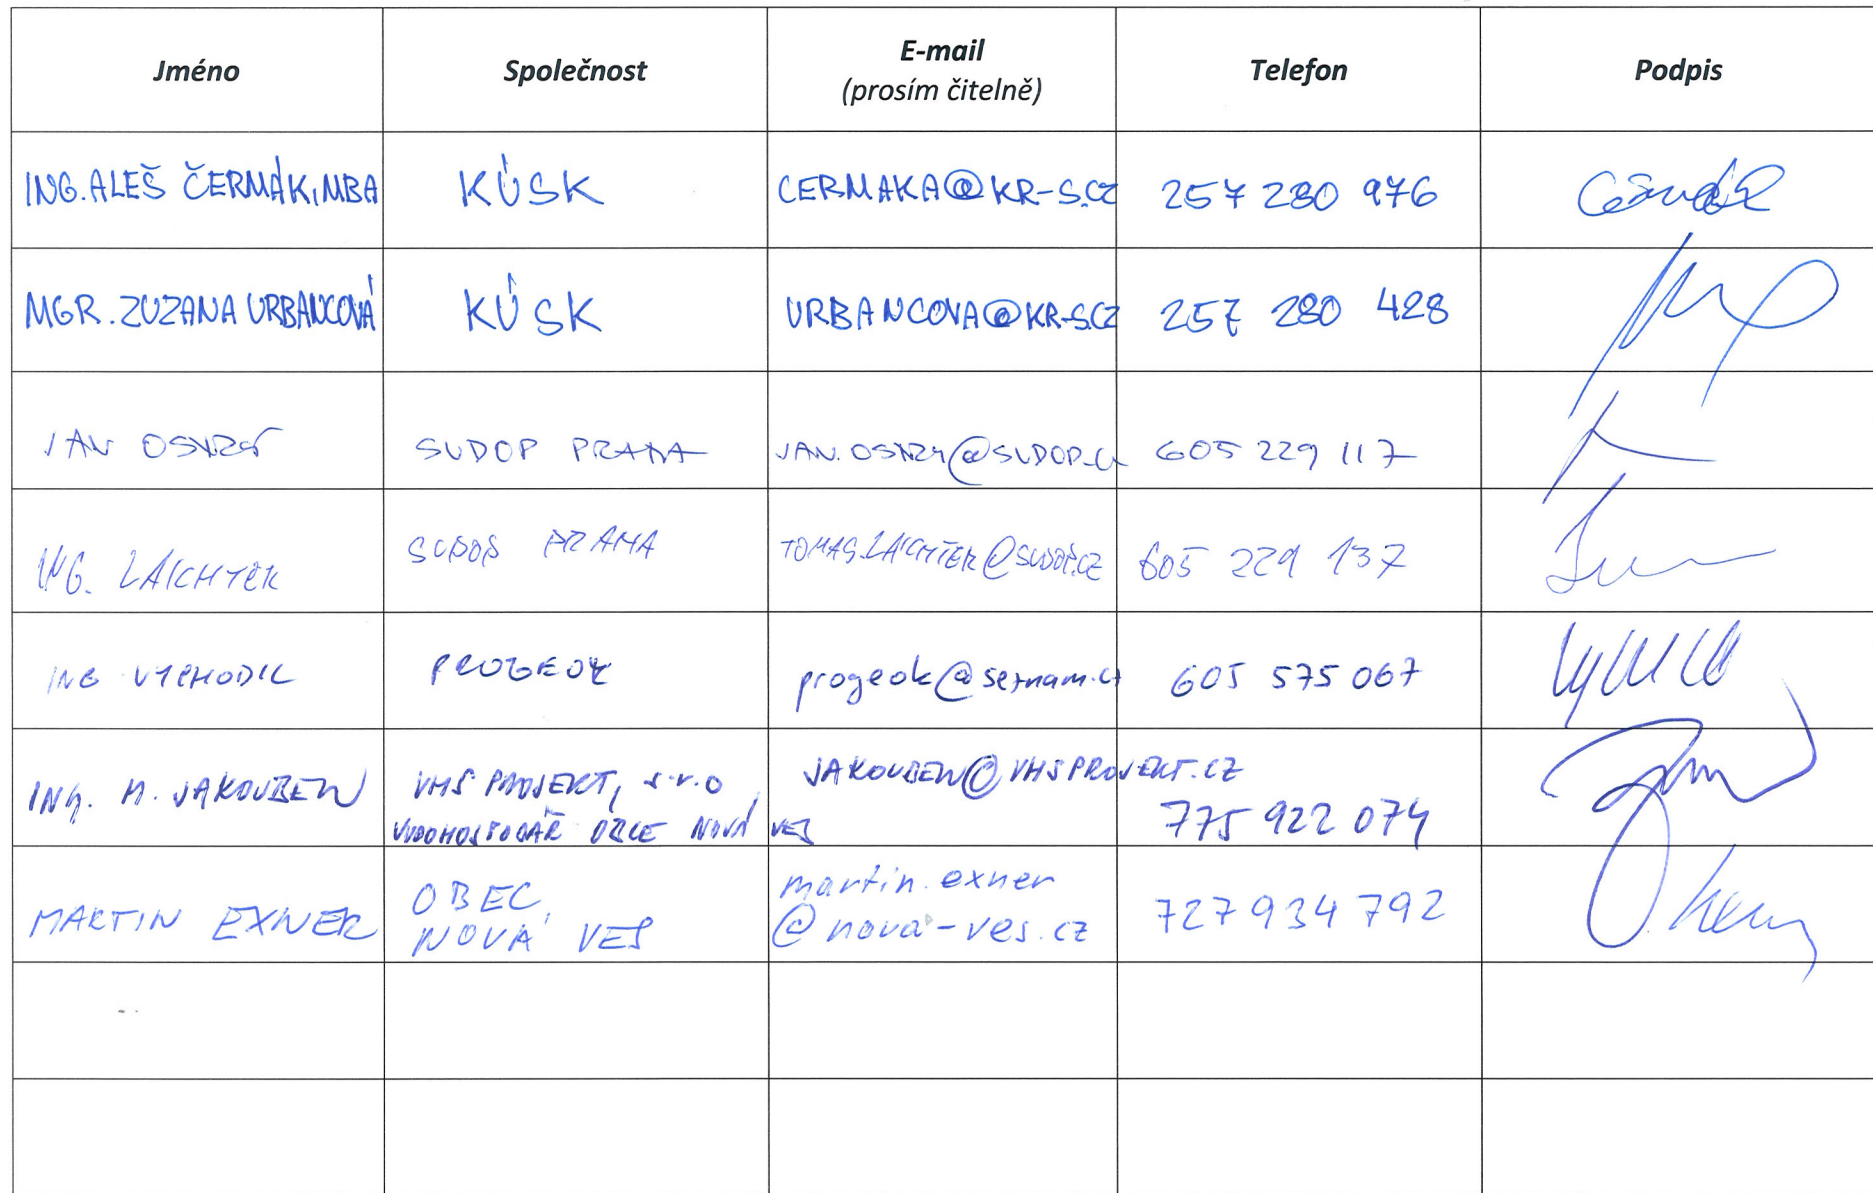 Jméno Společnost E-mail (prosím čitelně) Telefon Podpis
ING. ALEŠ ČERMÁK, MBA KÚSK CERMAKA@KR-S.CZ 257 280 976
MGR. ZUZANA URBANCOVÁ KÚSK URBANCOVA@KR-S.CZ 257 280 428
JAN SUDOP PRAHA 605 229 117
ING. LAICHTER SUDOP PRAHA TOMAS.LAICHTER@SUDOP.CZ 605 229 137
ING VYCHODIL PROGEOK progeok@seznam.cz 605 575 067
ING. M. JAKOUBEK VHS PROJEKT, s.r.o JAKOUBEK@VHSPROJEKT.CZ
VODOHOSPODÁŘ OBCE NOVÁ VES 775 922 074
MARTIN EXNER OBEC NOVÁ VES martin.exner@nova-ves.cz 727 934 792